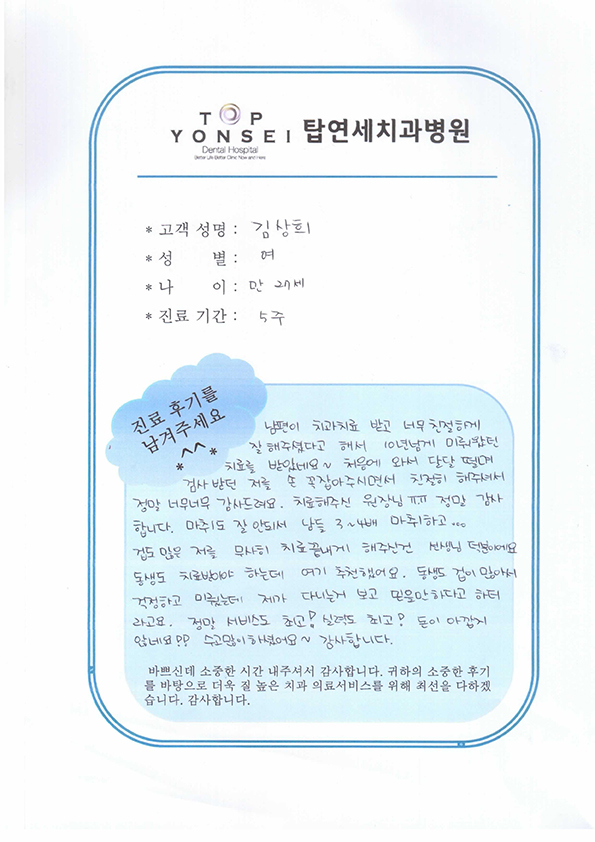 TOP
YONSEI
Dental Hospital
Better Life Better Clinic Now and Here
탑연세치과병원
* 고객 성명 : 김상희
* 성 별 : 여
* 나 이 : 만 27세
* 진료 기간 : 5주
진료 후기를
남겨주세요
* ^^ *
남편이 치과치료 받고 너무 친절하게
잘 해주셨다고 해서 10년넘게 미뤄왔던
치료를 받았네요~ 처음에 와서 달달 떨며
검사 받던 저를 손 꼭잡아주시면서 친절히 해주셔서
정말 너무너무 감사드려요. 치료해주신 원장님 ㅠㅠ 정말 감사
합니다. 마취도 잘 안되서 남들 3~4배 마취하고...
겁도 많은 저를 무사히 치료끝내게 해주신건 선생님 덕분이에요
동생도 치료받아야 하는데 여기 추천했어요. 동생도 겁이 많아서
걱정하고 미뤘는데 제가 다니는거 보고 믿을만하다고 하더
라고요. 정말 서비스도 최고! 실력도 최고! 돈이 아깝지
않네요!! 수고많이하셨어요~ 감사합니다.
바쁘신데 소중한 시간 내주셔서 감사합니다. 귀하의 소중한 후기
를 바탕으로 더욱 질 높은 치과 의료서비스를 위해 최선을 다하겠
습니다. 감사합니다.